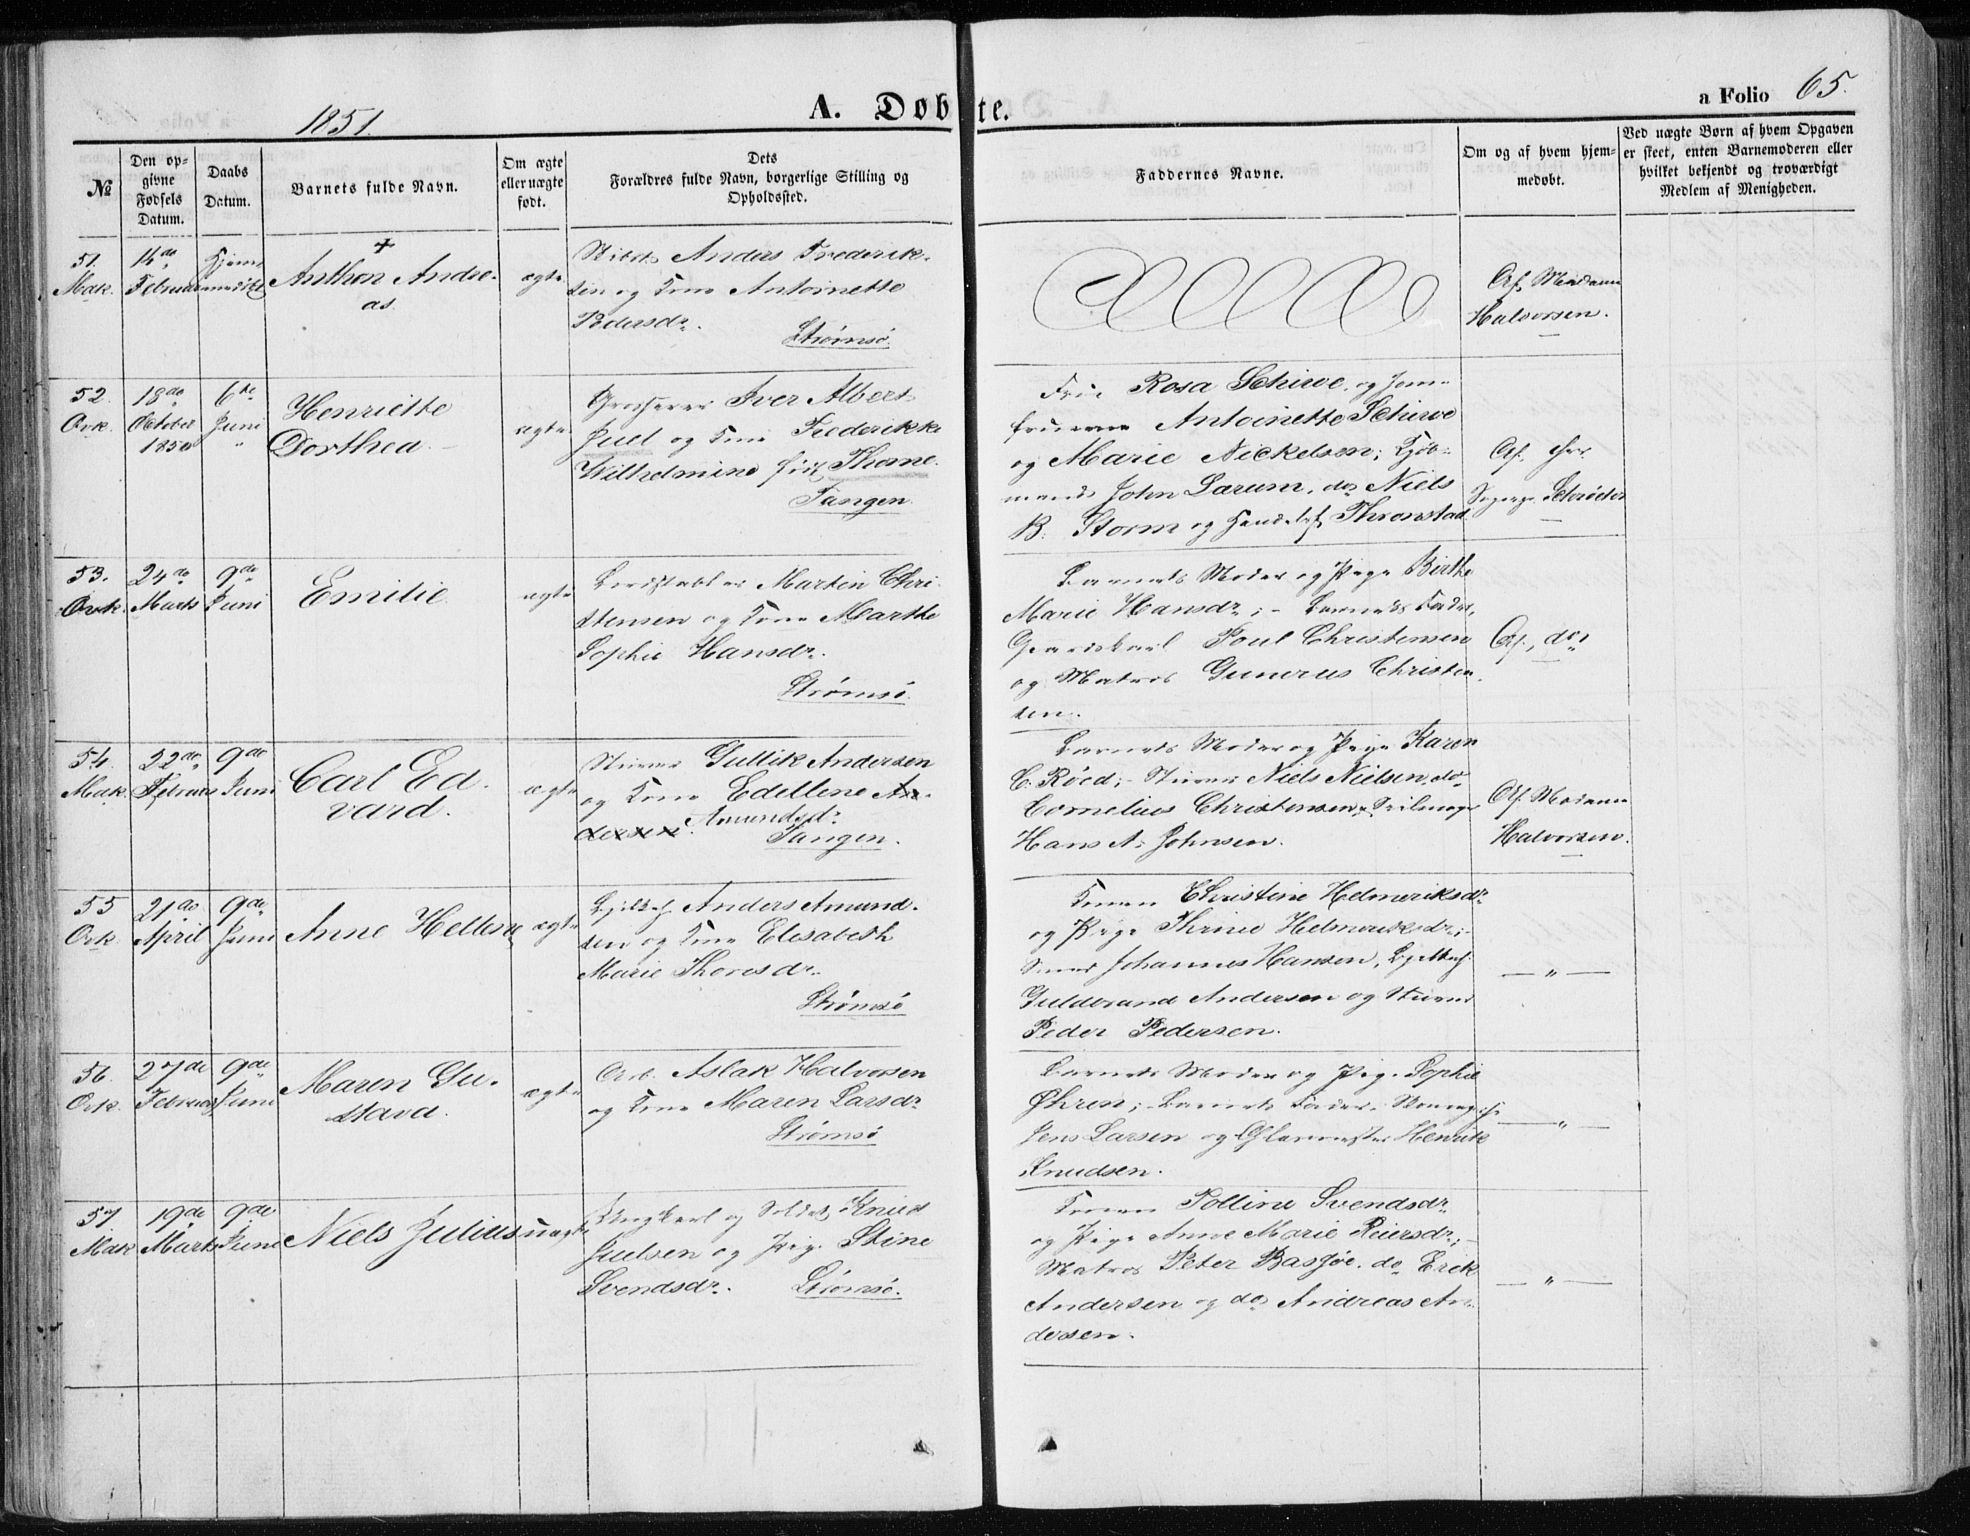 1851.
A. Døbte.
a Folio 65.
№
Den opgivne Fødsels Datum.
Daabs Datum.
Barnets fulde Navn.
Om ægte eller uægte født.
Dets Forældres fulde Navn, borgerlige Stilling og Opholdssted.
Faddernes Navne.
Om og af hvem hjemmedøbt.
Ved uægte Børn af hvem Opgaven er skeet, enten Barnemoderen eller hvilket bekjendt og troværdigt Medlem af Menigheden.
51.
Mdk.
14de
Februar
+
Anthon Andre-
as.
ægte
Anders Frederik-
sen og Kone Antoinette
Pedersdr.
Strømsø.
Af Madame
Halvorsen.
52.
Qvk.
18de
October
1850
6te
Juni
Henriette
Dorthea
ægte
Grosserer Iver Albert
Juel og Kone Frederikke
Wilhelmine født Thorne.
Tangen.
Frue Rosa Schiwe, og Jom-
fruerne Antoinette Schiwe
og Marie Nickelsen; Kjøb-
mand John Larum, do Niels
B. Storm og Handelsf. Thronstad
Af Hr
Sognepr. Schrøder
53.
Qvk.
24de
Marts
9de
Juni
Emilie
ægte
Martin Chri-
stensen og Kone Marthe
Sophie Hansdr.
Strømsø
Barnets Moder og Pige Birthe
Marie Hansdr; - Barnets Fader,
Gaardskarl Poul Christensen
og Matros Gunerus Christen-
sen.
Af, do
54.
Mdk.
22de
Februar
9de
Juni
Carl Ed-
vard.
ægte
Stuver Gullik Andersen
og Kone Edellene An-
dersen Amundsdr
Tangen.
Barnets Moder og Pige Karen
C. Røed; - Stuver Niels Nielsen, do
Cornelius Christensen, Seilmager
Hans A. Johnsen.
Af Madame
Halvorsen.
55
Qvk
21de
April
9de
Juni
Anne Hellene
ægte
Anders Amund-
sen og Kone Elisabeth
Marie Thoresdr.
Strømsø
Konen Christine Helmeriksdr
og Pige Thrine Helmeriksdr;
Johannes Hansen,
Guldbrand Andersen og Stuver
Peder Pedersen.
— " —
56.
Qvk.
27de
Februar
9de
Juni
Maren Gu-
stava.
ægte
Arb. Aslak Halvorsen
og Kone Maren Larsdr
Strømsø
Barnets Moder og Pige Sophie
Øhren; Barnets Fader,
Jens Larsen og Glarmester Henrik
Knudsen.
— " —
57
Mdk
19de
Marts
9de
Juni
Niels Julius
uægte
Ungkarl og Soldat Knud
Juelsen og Pige Stine
Svendsdr.
Strømsø.
Konen Polline Svendsdr
og Pige Anne Marie Reiersdr; -
Matros Peter Basjøe, do Erik
Andersen og do Andreas An-
dersen.
— " —